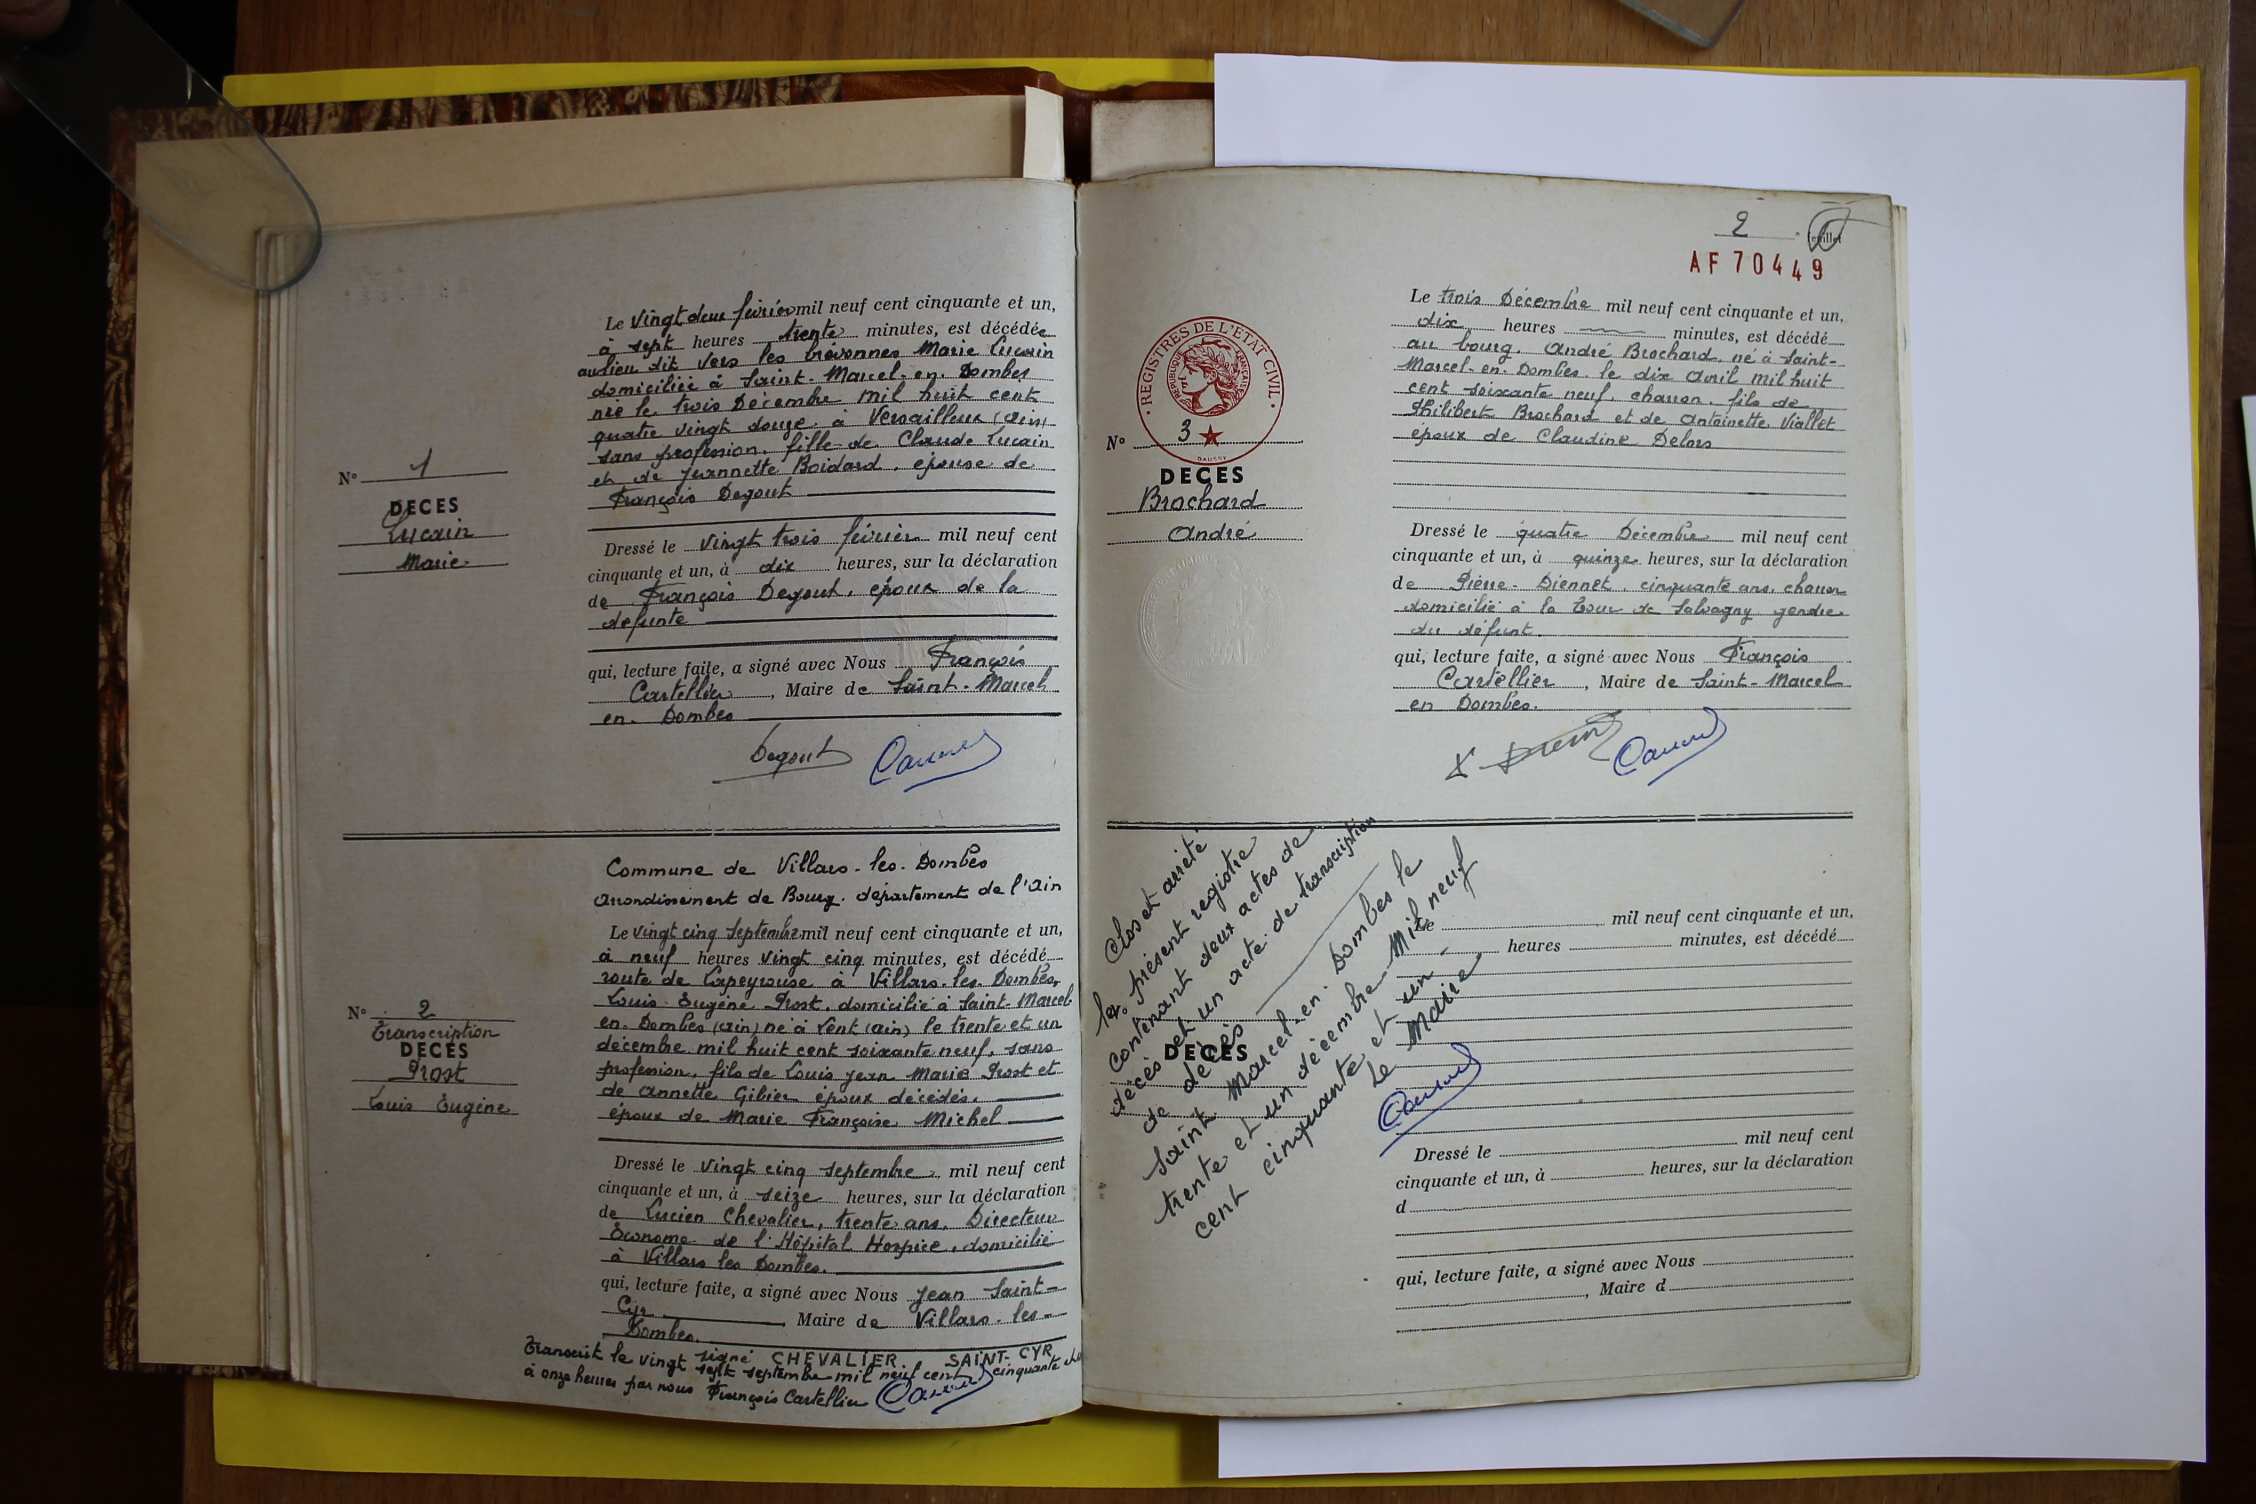 N° 1
DECES
Lucain
Marie
Le vingt deux février mil neuf cent cinquante et un,
à sept heures trente minutes, est décédée
au lieu dit vers les Marie Lucain
domiciliée à Saint-Marcel-en-Dombes
née le trois Décembre mil huit cent
quatre vingt douze à Versailleux (Ain)
sans profession, fille de Claude Lucain
et de Jeannette Boidard, épouse de
François Degout
Dressé le vingt trois février mil neuf cent
cinquante et un, à dix heures, sur la déclaration
de François Degout, époux de la
défunte
qui, lecture faite, a signé avec Nous François
Cartellier, Maire de Saint-Marcel
en-Dombes
Degout
N° 2
Transcription
DECES
Prost
Louis Eugène
Commune de Villars-les-Dombes
arrondissement de Bourg, département de l'Ain
Le vingt cinq septembre mil neuf cent cinquante et un,
à neuf heures vingt cinq minutes, est décédé
route de Lapeyrouse à Villars-les-Dombes,
Louis Eugène Prost, domicilié à Saint-Marcel
en-Dombes (Ain) né à Lent (Ain) le trente et un
décembre mil huit cent soixante neuf, sans
profession, fils de Louis Jean Marie Prost et
de Annette Gibier époux décédés,
époux de Marie Françoise Michel
Dressé le vingt cinq septembre mil neuf cent
cinquante et un, à seize heures, sur la déclaration
de Lucien Chevalier, trente ans, Directeur
Econome de l'Hôpital Hospice, domicilié
à Villars les Dombes.
qui, lecture faite, a signé avec Nous Jean Saint-
Cyr, Maire de Villars-les-
Dombes.
signé CHEVALIER SAINT-CYR
Transcrit le vingt sept septembre mil neuf cent cinquante et un
à onze heures par nous François Cartellier
2 feuillet
AF 70449
REGISTRES DE L'ETAT CIVIL
REPUBLIQUE FRANÇAISE
DAUSSY
N° 3
DECES
Brochard
André
Le trois Décembre mil neuf cent cinquante et un,
dix heures minutes, est décédé
au bourg, André Brochard, né à Saint-
Marcel-en-Dombes le dix avril mil huit
cent soixante neuf, charron, fils de
Philibert Brochard et de Antoinette Viallet
époux de Claudine Delors
Dressé le quatre Décembre mil neuf cent
cinquante et un, à quinze heures, sur la déclaration
de Pierre Diennet, cinquante ans, charron
domicilié à la Tour de Salvagny gendre
du défunt.
qui, lecture faite, a signé avec Nous François
Cartellier, Maire de Saint-Marcel
en Dombes.
Clos et arrêté
le présent registre
contenant deux actes de
décès et un acte de transcription
de décès
Saint Marcel-en-Dombes le
trente et un décembre Mil neuf
cent cinquante et un
Le Maire
N°
DECES
Le mil neuf cent cinquante et un,
heures minutes, est décédé
Dressé le mil neuf cent
cinquante et un, à heures, sur la déclaration
d
qui, lecture faite, a signé avec Nous
, Maire d